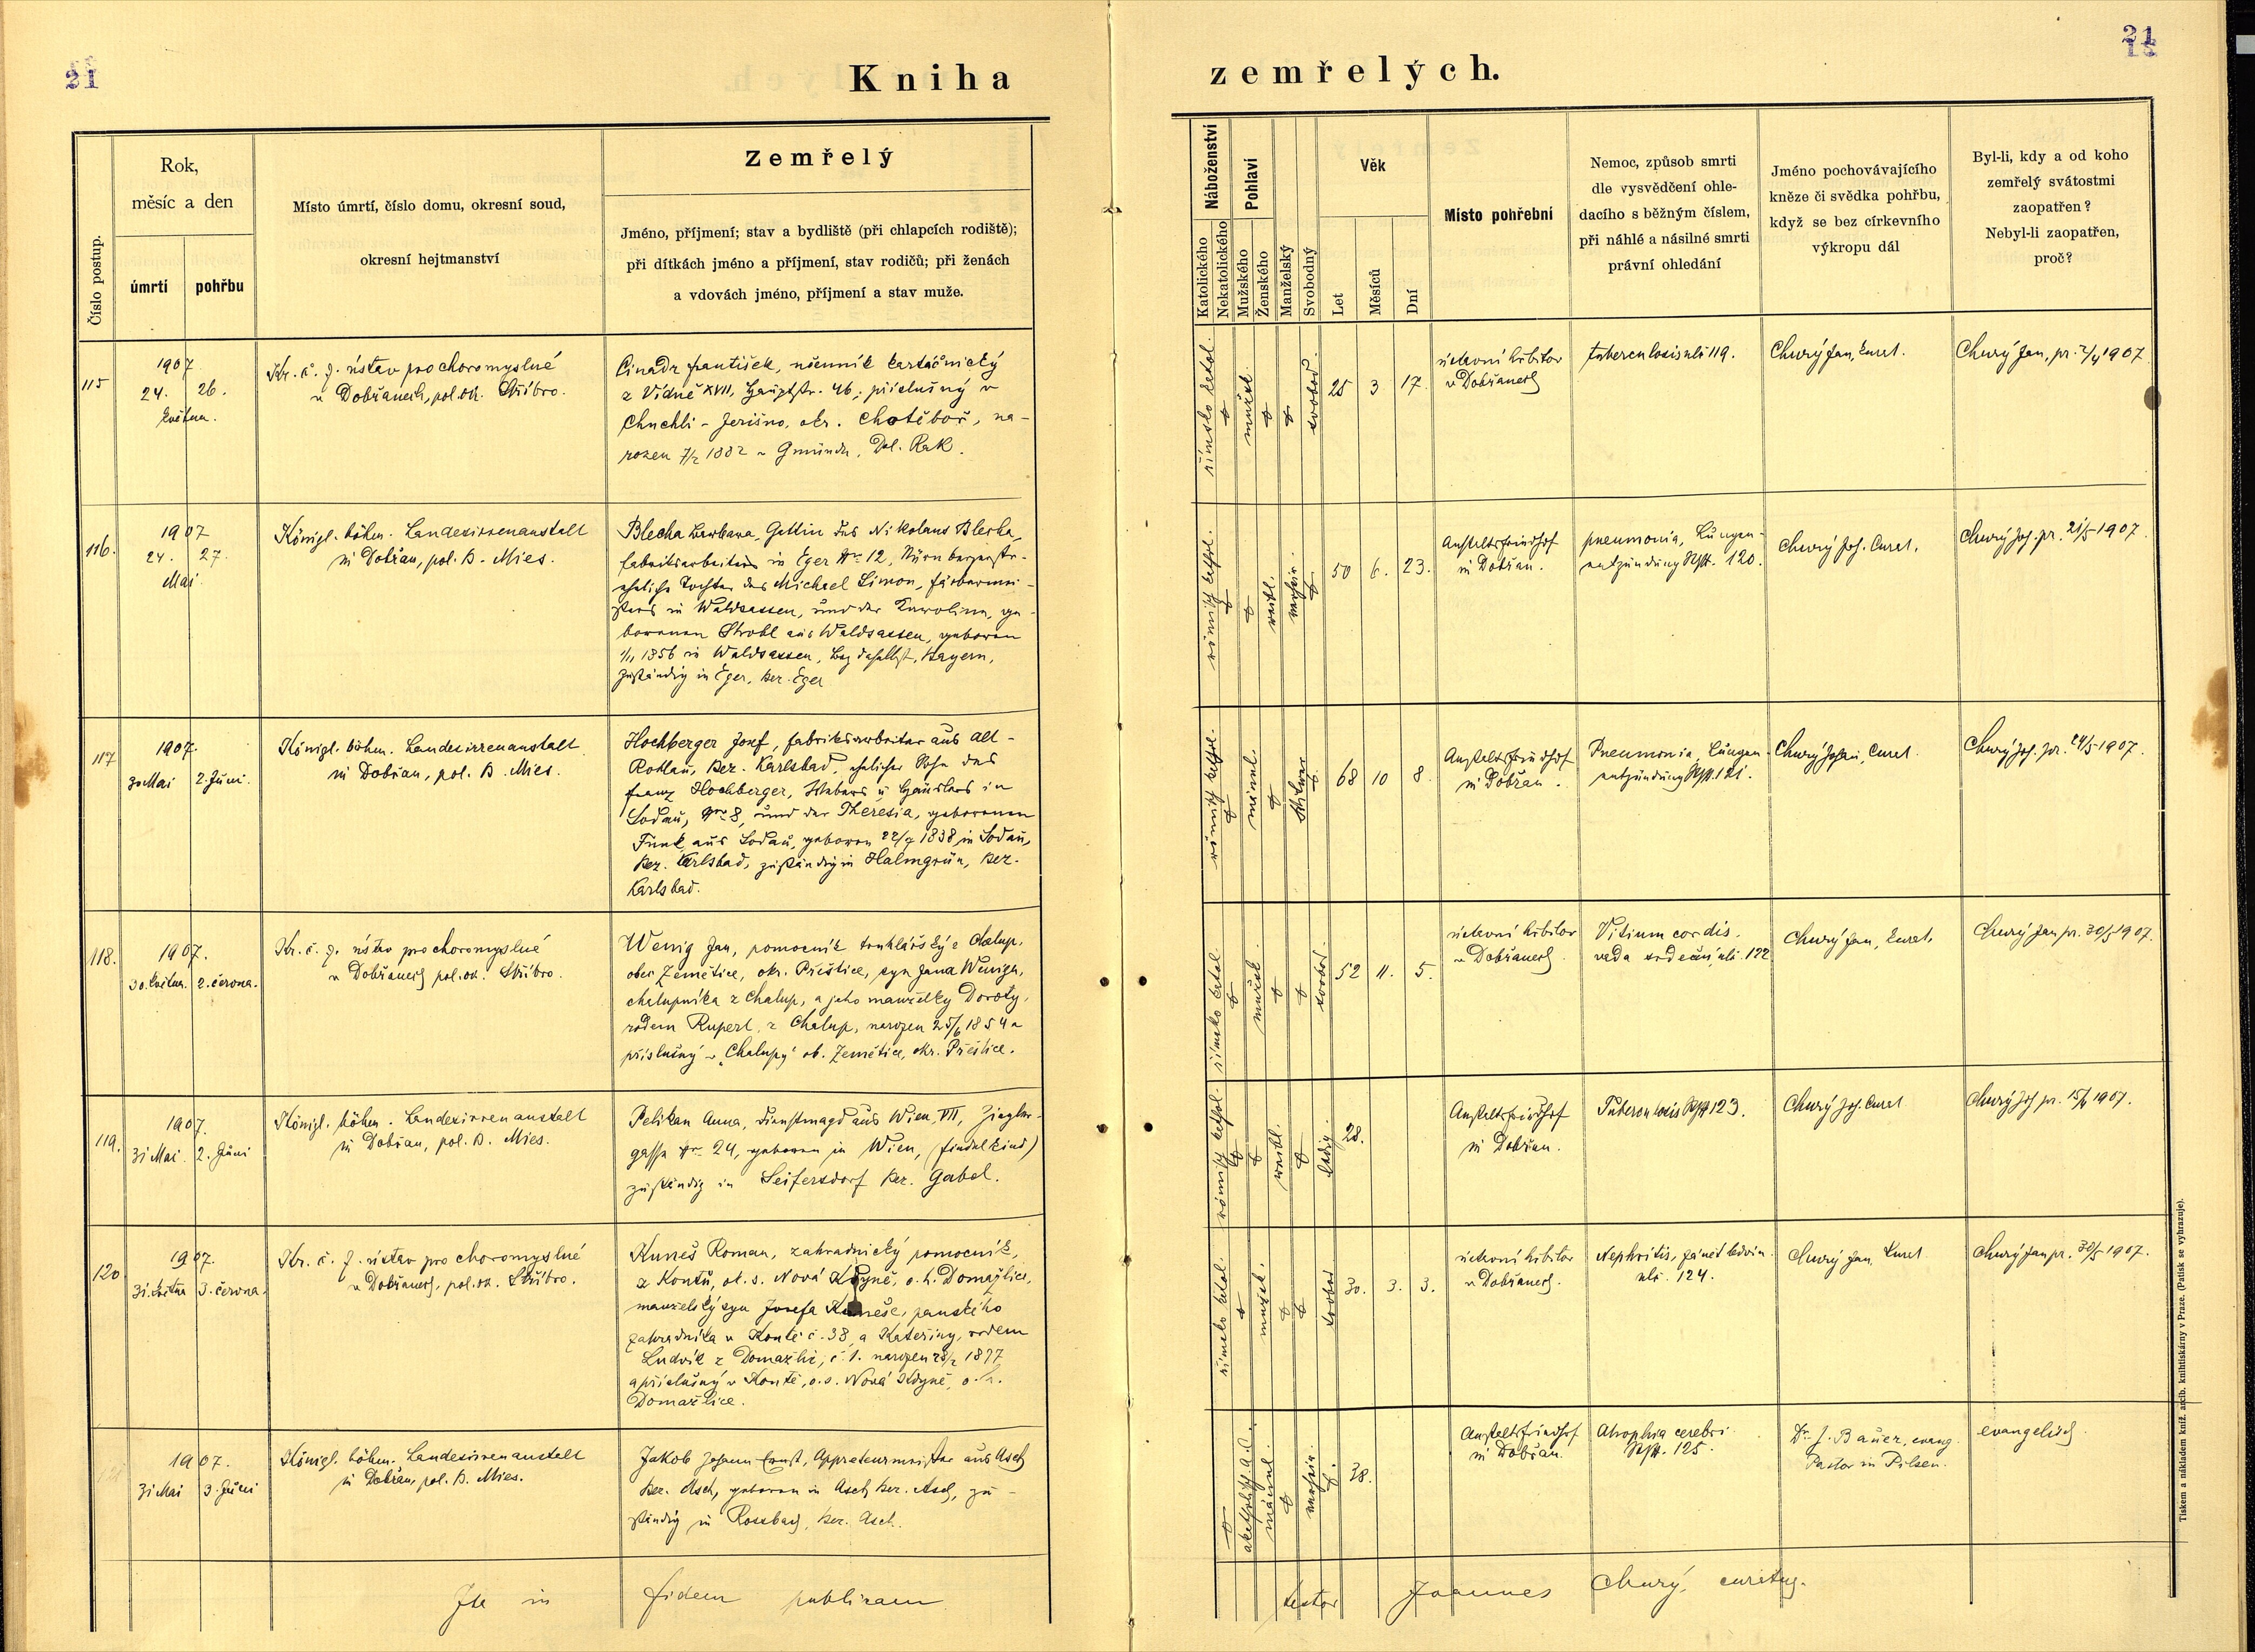 21
21
Kniha zemřelých.
Číslo postup.
Rok,
měsíc a den
úmrtí
pohřbu
Místo úmrtí, číslo domu, okresní soud,
okresní hejtmanství
Zemřelý
Jméno, příjmení; stav a bydliště (při chlapcích rodiště);
při dítkách jméno a příjmení, stav rodičů; při ženách
a vdovách jméno, příjmení a stav muže.
Náboženství
Katolického
Nekatolického
Pohlaví
Mužského
Ženského
Manželský
Svobodný
Věk
Let
Měsíců
Dní
Místo pohřební
Nemoc, způsob smrti
dle vysvědčení ohle-
dacího s běžným číslem,
při náhlé a násilné smrti
právní ohledání
Jméno pochovávajícího
kněze či svědka pohřbu,
když se bez církevního
výkropu dál
Byl-li, kdy a od koho
zemřelý svátostmi
zaopatřen?
Nebyl-li zaopatřen,
proč?
115
1907
24. 26.
května.
Kr. č. z. ústav pro choromyslné
v Dobřanech, pol. ok. Stříbro.
Cinadr František, učenník kartáčnický
z Vídně XVII, Hauptstr. 46, příslušný v
Chuchli - Jeřišno, okr. Chotěboř, na-
rozen 7/2 1882 v Gmündu, Dol. Rak.
římsko katol.
mužsk.
svobod.
25 3 17.
ústavní hřbitov
v Dobřanech
tuberculosis uli 119.
Churý Jan, kurat.
Churý Jan, pr. 2/4 1907
116.
1907
24. 27.
Mai
Königl. böhm. Landesirrenanstalt
in Dobřan, pol. B. Mies.
Blecha Barbara, Gattin des Nikolaus Blecha,
Fabriksarbeiters in Eger Nr. 12, Nürnbergerstr.
eheliche Tochter des Michael Simon, Färbermei-
sters in Waldsassen, und der Karolina, ge-
borenen Strobl aus Waldsassen, geboren
1/11 1856 in Waldsassen, Bez. daselbst, Bayern,
zuständig in Eger, Bez. Eger
römisch kathol.
weibl.
verheir.
50 6. 23.
Anstaltsfriedhof
in Dobřan.
pneumonia, Lungen-
entzündung 120.
Churý Joh. Curat.
Churý Joh. pr. 21/5 1907
117
1907.
30 Mai 2. Juni.
Königl. böhm. Landesirrenanstalt
in Dobřan, pol. B. Mies.
Hochberger Josef, Fabriksarbeiter aus Alt-
Rohlau, Bez. Karlsbad, ehelicher Sohn des
Franz Hochberger, Webers u Häuslers in
Sodau, Nr. 8, und der Theresia, geborenen
Funk aus Sodau, geboren 22/7 1838 in Sodau,
Bez. Karlsbad, zuständig in Halmgrün, Bez.
Karlsbad.
römisch kathol.
männl.
Witwer
68 10 8.
Anstaltsfriedhof
in Dobřan.
Pneumonia, Lungen
entzündung 121.
Churý Johann, Curat.
Churý Joh. pr. 24/5 1907.
118.
1907.
30. května. 2. června.
Kr. č. z. ústav pro choromyslné
v Dobřanech pol. ok. Stříbro.
Wenig Jan, pomocník truhlářský z Chalup,
obec Zemětice, okr. Přeštice, syn Jana Weniga,
chalupníka z Chalup, a jeho manželky Doroty,
rodem Rupert, z Chalup, narozen 25/6 1854 a
příslušný v „Chalupy" ob. Zemětice, okr. Přeštice.
římsko katol
mužsk.
svobod.
52 11. 5.
ústavní hřbitov
v Dobřanech.
Vitium cordis.
vada srdeční uli. 122
Churý Jan, kurat.
Churý Jan pr. 30/5 1907.
119.
1907.
31 Mai 2. Juni
Königl. böhm. Landesirrenanstalt
in Dobřan, pol. B. Mies.
Pelikan Anna, Dienstmagd aus Wien, VII, Ziegler-
gasse Nr. 24, geboren in Wien, (Findelkind)
zuständig in Seifersdorf Bez. Gabel.
römisch kathol.
weibl.
ledig.
28.
Anstaltsfriedhof
in Dobřan.
Tuberculosis 123.
Churý Joh. Curat
Churý Joh pr. 15/4 1907.
120
1907.
31. května 3. června.
Kr. č. z. ústav pro choromyslné
v Dobřanech, pol. ok. Stříbro.
Kuneš Roman, zahradnický pomocník,
z Koutů, ok. s. Nová Kdyně, o. h. Domažlice,
manželský syn Josefa Kuneše, panského
zahradníka v Koutě č. 38, a Kateřiny, rodem
Ludvík z Domažlic, č. 1. narozen 28/2 1877
a příslušný v Koutě, o. s. Nová Kdyně, o. h.
Domažlice.
římsko katol.
mužsk.
svobod
30. 3. 3.
ústavní hřbitov
v Dobřanech.
Nephritis, zánět ledvin.
uli. 124.
Churý Jan, kurat
Churý Jan pr. 30/5 1907.
1907.
31 Mai 3. Juni
Königl. böhm. Landesirrenanstalt
in Dobřan, pol. B. Mies.
Jakob Johann Ernst, Appreteurmeister aus Asch
Bez. Asch, geboren in Asch, Bez. Asch, zu-
ständig in Rossbach, Bez. Asch.
akatholisch a. c.
männl.
verheir.
38.
Anstaltsfriedhof
in Dobřan.
Atrophia cerebri.
125.
Dr. J. Bauer, evang.
Pastor in Pilsen.
evangelisch.
Ita in fidem publicam testor Joannes Churý, curatus.
Tiskem a nákladem kníž. arcib. knihtiskárny v Praze. (Patisk se vyhrazuje).